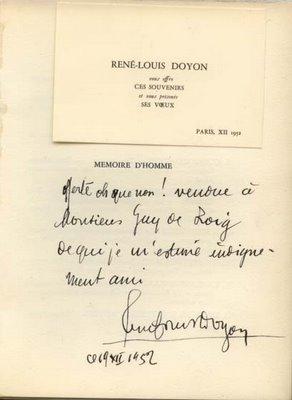 RENÉ-LOUIS DOYON
vous offre
CES SOUVENIRS
et vous présente
SES VŒUX
PARIS, XII 1952
MEMOIRE D'HOMME
offerte oh que non ! vendue à
Monsieur Guy de Roig
de qui je m'estime indigne-
ment ami
René Louis Doyon
ce 19 XII 1952